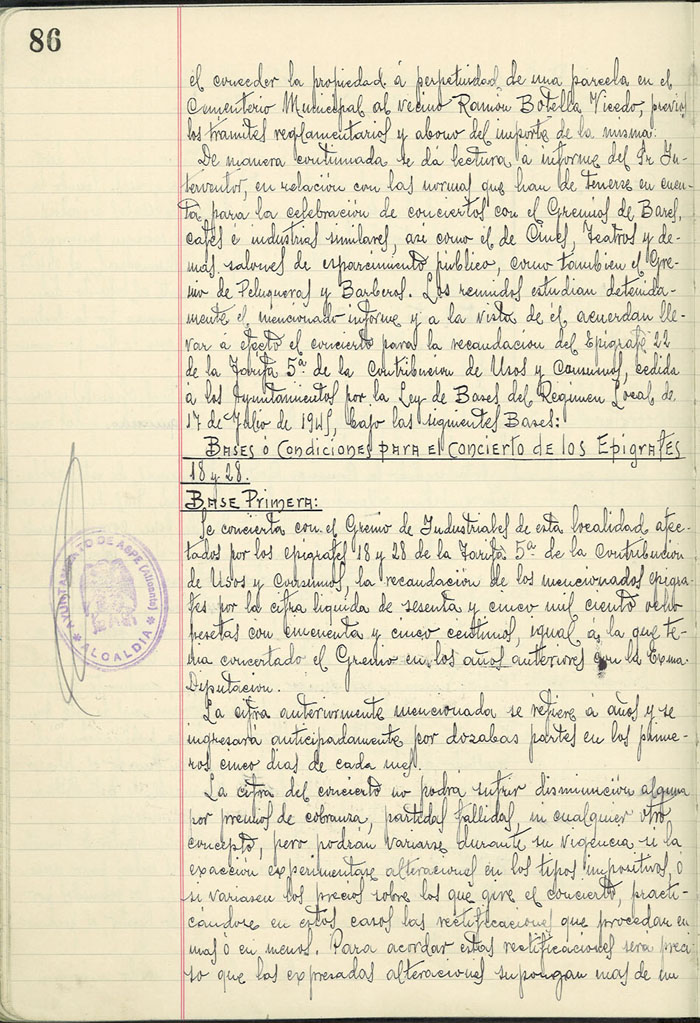 86
el conceder la propiedad á perpetuidad de una parcela en el
Cementerio Municipal al vecino Ramón Botella Vicedo, previos
los trámites reglamentarios y abono del importe de la misma.
De manera continuada se dá lectura a informe del Sr In-
terventor, en relación con las normas que han de tenerse en cuen-
ta para la celebración de conciertos con el Gremios de Bares,
cafés é industrias similares, así como el de Cines, Teatros y de-
más salones de esparcimiento público, como tambien el Gre-
mio de Peluqueros y Barberos. Los reunidos estudian detenida-
mente el mencionado informe y a la vista de él acuerdan lle-
var a efecto el concierto para la recaudación del Epígrafe 22
de la Tarifa 5ª de la Contribución de Usos y Consumos, cedida
a los Ayuntamientos por la Ley de Bases del Régimen Local de
17 de Julio de 1945, bajo las siguientes Bases:
BASES Ó CONDICIONES PARA EL CONCIERTO DE LOS EPIGRAFES
18 y 28.
BASE PRIMERA:
Se concierta con el Gremio de Industriales de esta localidad afec-
tados por los epígrafes 18 y 28 de la Tarifa 5ª de la Contribución
de Usos y Consumos, la recaudación de los mencionados epígra-
fes por la cifra líquida de sesenta y cinco mil ciento ocho
pesetas con cincuenta y cinco céntimos, igual á la que te-
nia concertado el Gremio en los años anteriores con la Exma
Diputación.
La cifra anteriormente mencionada se refiere á años y se
ingresará anticipadamente por dozabas partes en los prime-
ros cinco días de cada mes.
La cifra del concierto no podrá sufrir disminución alguna
por premios de cobranza, partidas fallidas, ni cualquier otro
concepto, pero podrán variarse durante su vigencia si la
exacción experimentase alteraciones en los tipos impositivos, ó
si variasen los precios sobre los que gire el concierto, practi-
cándose en estos casos las rectificaciones que procedan en
mas ó en menos. Para acordar estas rectificaciones será preci-
so que las expresadas alteraciones supongan mas de un
AYUNTAMIENTO DE ASPE (Alicante)
ALCALDIA